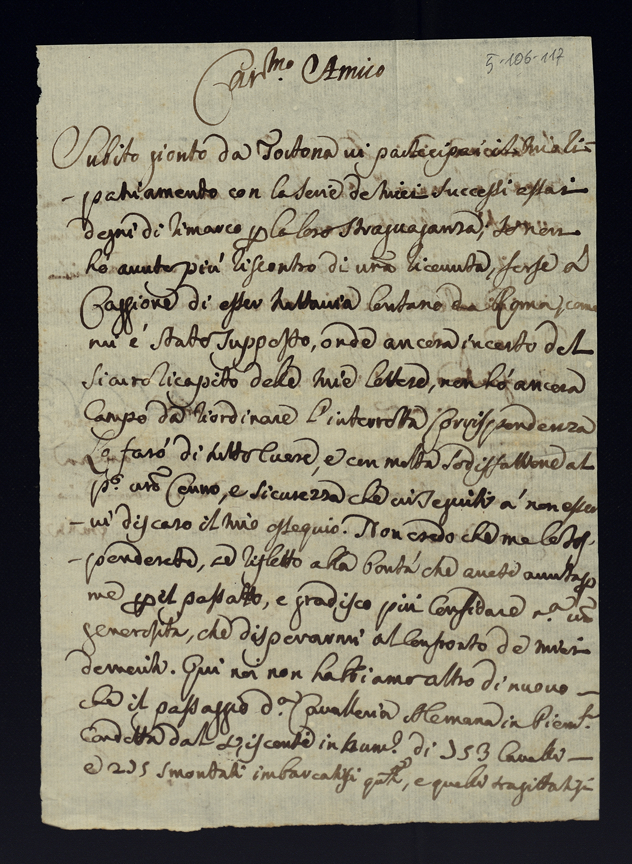 5-106-117
Car.mo Amico
Subito gionto da Tortona vi partecipai il mio ri-
-patriamento con la serie de miei successi assai
degni di rimarco p la loro stravaganza; Io non
hò avuto più riscontro di una ricevuta, forse à
Caggione di esser tuttavia lontano da Roma, come
mi é stato supposto, onde ancora incerto del
sicuro ricapito delle mie lettere, non hò ancora
Campo da riordinare l'interrotta Corrispondenza
La farò di tutto cuore, e con molta sodisfattione al
p.o vro Cenno, e sicurezza che vi seguiti à non esser
-vi discaro il mio ossequio. Non credo che me le sos-
-penderete, se rifletto alla bontà che avete avuta p
me p il passato, e gradisco più Confidare n.a vra
generosità, che disperarmi al confronto de miei
demeriti. Qui noi non habbiamo altro di nuovo
che il passaggio d.a Cavalleria Alemana in Piem.te
Condotta dal Visconti in num.o di 153 Cavalli
e 215 smontati imbarcatisi, e quelli tragittatisi